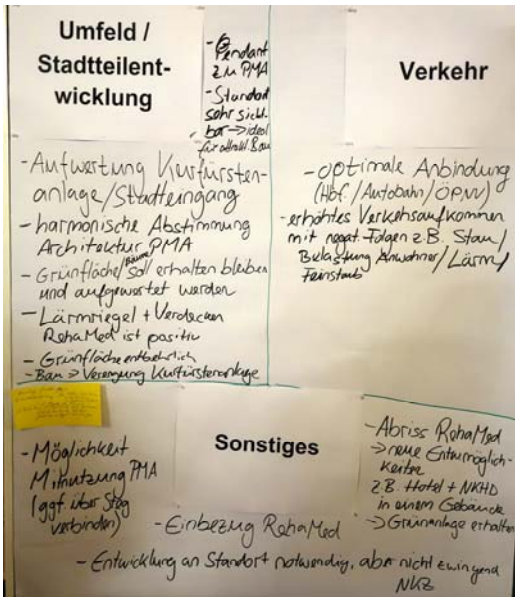 Umfeld /
Stadtteilent-
wicklung
- Pendant
zu PMA
- Standort
sehr sicht-
bar → ideal
für attrakt. Bau
- Aufwertung Kurfürsten-
anlage/Stadteingang
- harmonische Abstimmung
Architektur PMA
- Grünfläche/Bäume soll erhalten bleiben
und aufgewertet werden
- Lärmriegel + Verdecken
RehaMed ist positiv
- Grünfläche entbehrlich
- Bau → Verengung Kurfürstenanlage
Verkehr
- optimale Anbindung
(Hbf./Autobahn/ÖPNV)
- erhöhtes Verkehrsaufkommen
mit negat. Folgen z.B. Stau/
Belastung Anwohner/Lärm/
Feinstaub
Sonstiges
- Möglichkeit
Mitnutzung PMA
(ggf. über Steg
verbinden)
- Einbezug RehaMed
- Abriss RehaMed
→ neue
z.B. Hotel + NKHD
in einem Gebäude
→ Grünanlage erhalten
- Entwicklung an Standort notwendig, aber nicht zwingend
NKZ